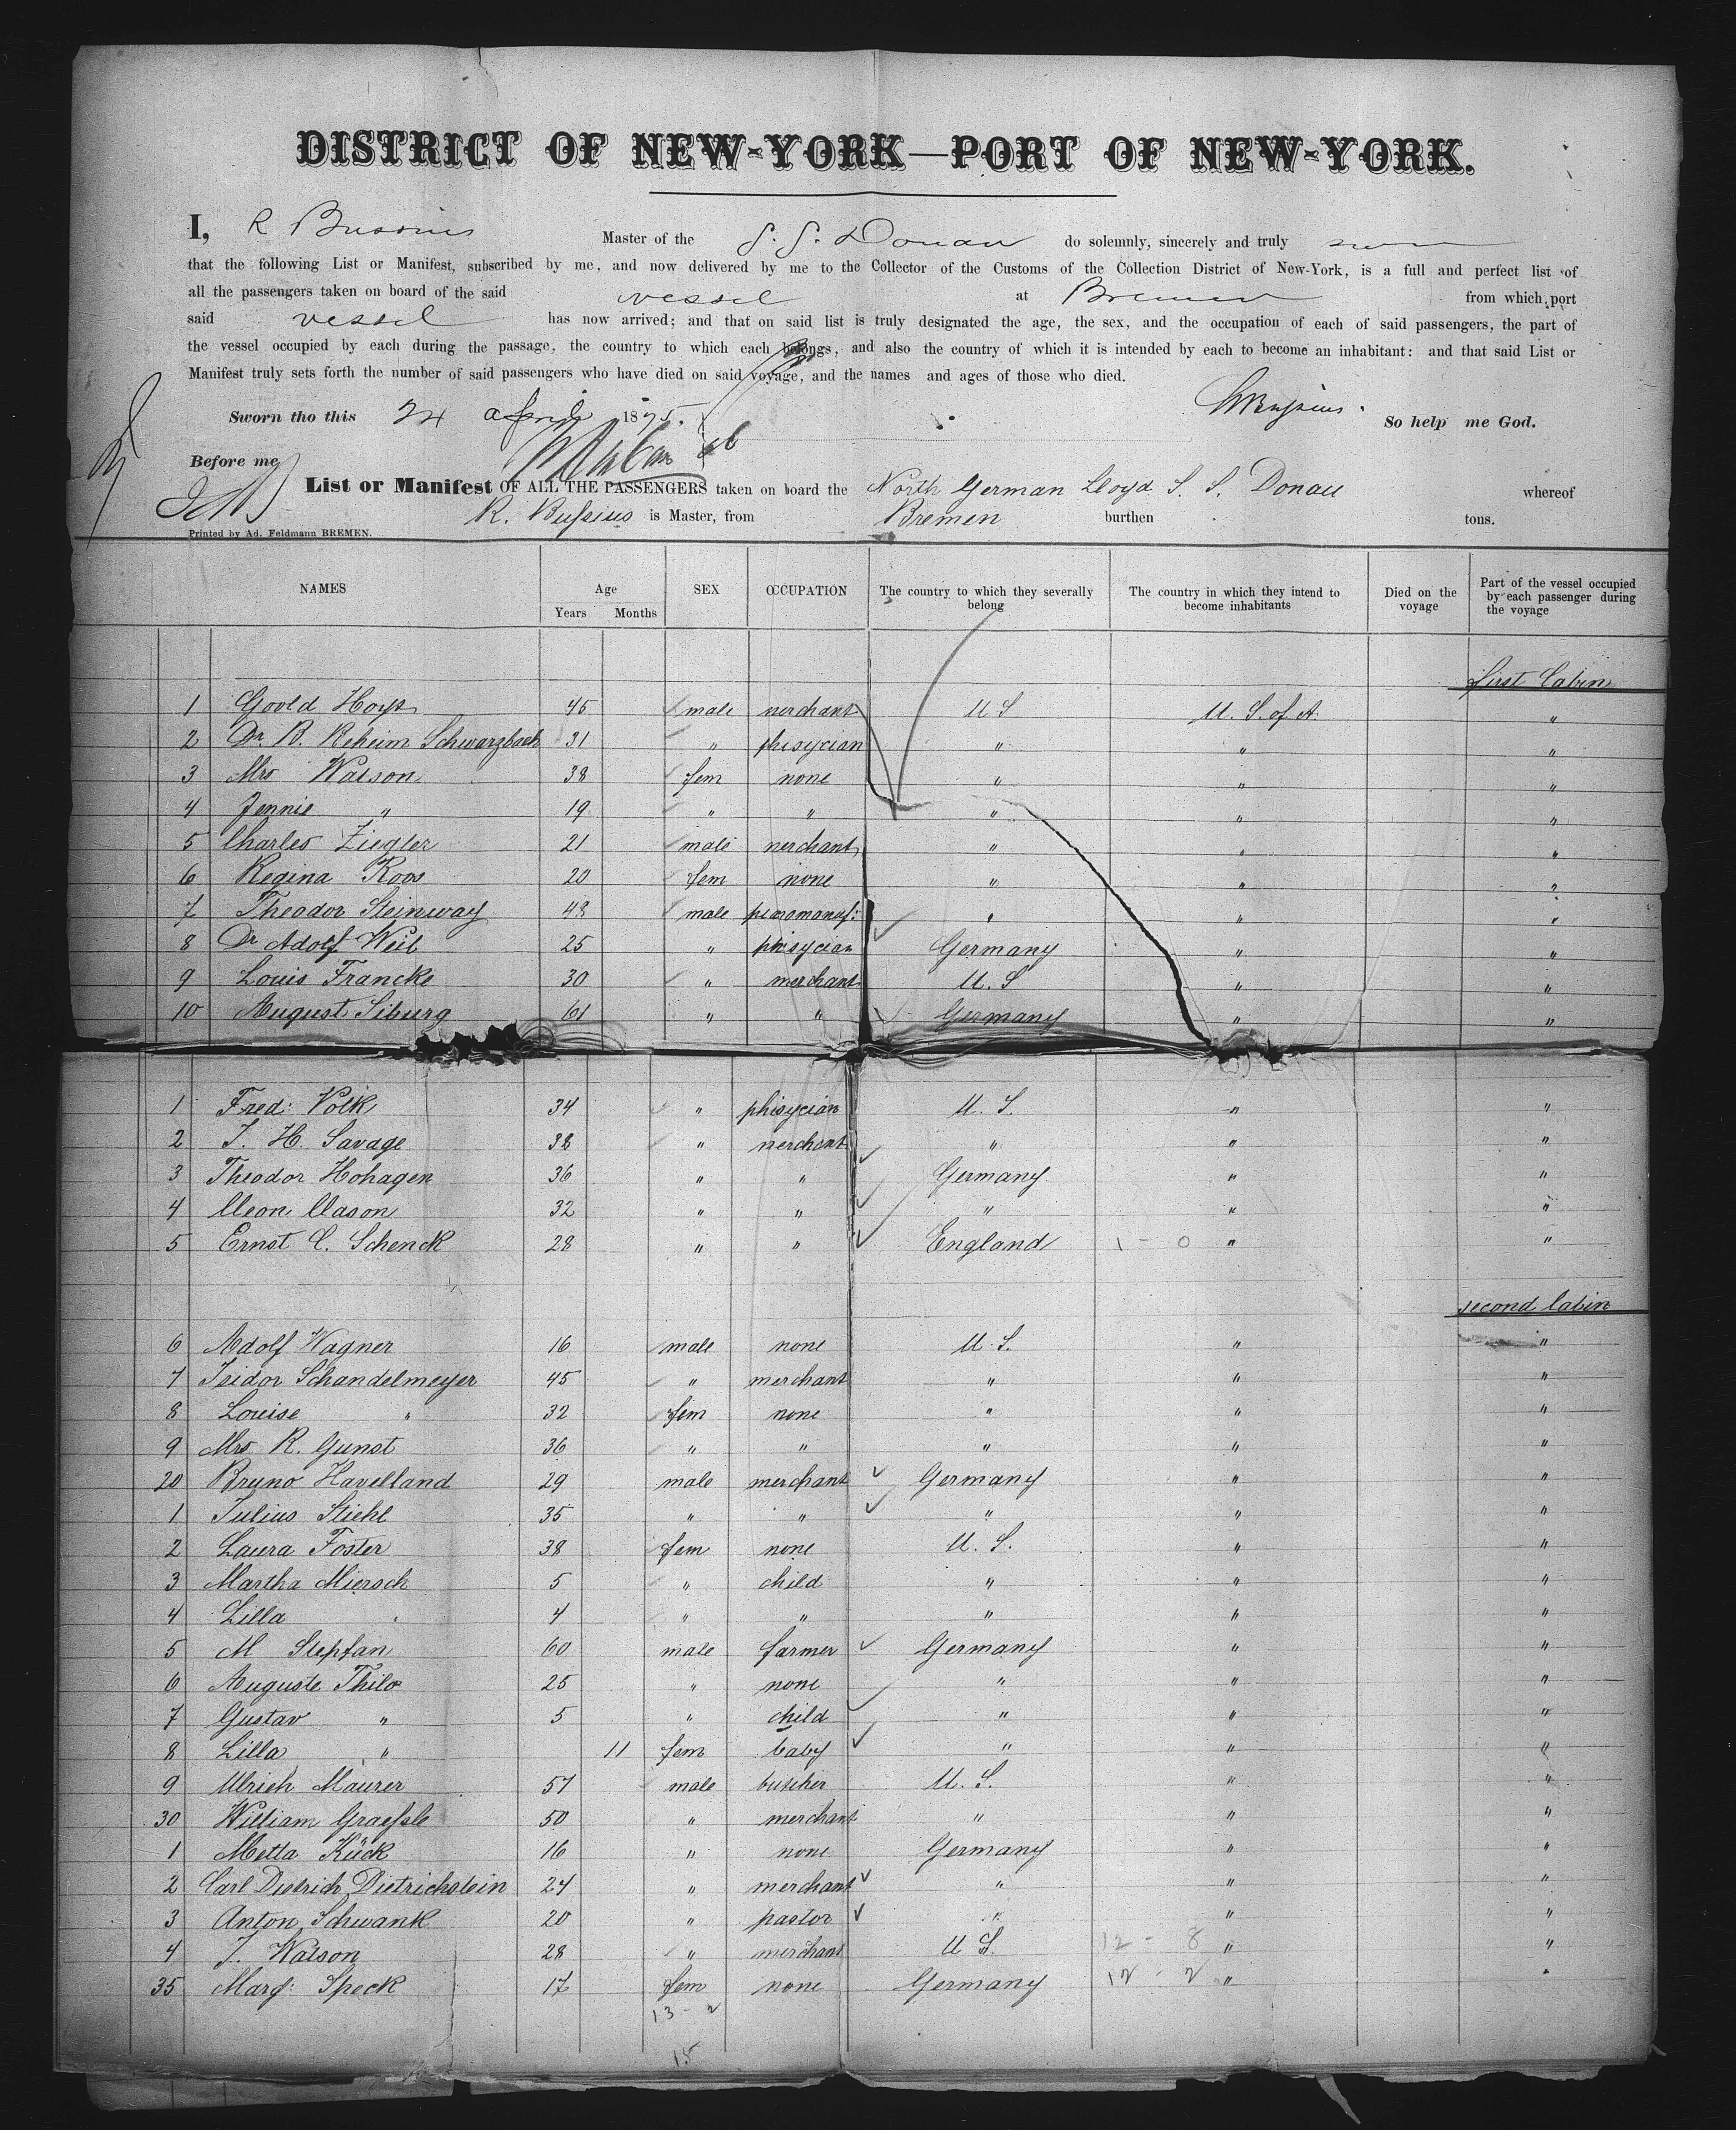 DISTRICT OF NEW-YORK—PORT OF NEW-YORK.
I, R Bussius Master of the S. S. Donau do solemnly, sincerely and truly
that the following List or Manifest, subscribed by me, and now delivered by me to the Collector of the Customs of the Collection District of New-York, is a full and perfect list of
all the passengers taken on board of the said vessel at Bremen from which port
said vessel has now arrived; and that on said list is truly designated the age, the sex, and the occupation of each of said passengers, the part of
the vessel occupied by each during the passage, the country to which each belongs, and also the country of which it is intended by each to become an inhabitant: and that said List or
Manifest truly sets forth the number of said passengers who have died on said voyage, and the names and ages of those who died.
Sworn tho this 24 April 1875. RBussius. So help me God.
Before me
List or Manifest OF ALL THE PASSENGERS taken on board the North German Lloyd S. S. Donau whereof
R. Bussius is Master, from Bremen burthen tons.
Printed by Ad. Feldmann BREMEN.
NAMES Age Years Months SEX OCCUPATION The country to which they severally belong The country in which they intend to become inhabitants Died on the voyage Part of the vessel occupied by each passenger during the voyage
first Cabin
1 Goold Hoyt 45 male merchant U S U. S. of A. "
2 Dr. B. Reheim Schwarzbach 31 " phisycian " " "
3 Mrs Watson 38 fem none " " "
4 Jennie " 19 " " " " "
5 Charles Ziegler 21 male merchant " " "
6 Regina Roos 20 fem none " " "
7 Theodor Steinway 48 male pianomanuf: " " "
8 Dr Adolf Weil 25 " phisycian Germany " "
9 Louis Francke 30 " merchant U. S " "
10 August Siburg 61 " " Germany " "
1 Fred: Volk 34 " phisycian U. S. " "
2 J. H. Savage 38 " merchant " " "
3 Theodor Hohagen 36 " " Germany " "
4 Cleon Clason 32 " " " " "
5 Ernst C. Schenck 28 " " England 1 - 0 " "
second Cabin
6 Adolf Wagner 16 male none U. S. " "
7 Isidor Schandelmeyer 45 " merchant " " "
8 Louise " 32 fem none " " "
9 Mrs R. Gunst 36 " " " " "
20 Bruno Havelland 29 male merchant Germany " "
1 Julius Stiehl 35 " " " " "
2 Laura Foster 38 fem none U. S. " "
3 Martha Miersch 5 " child " " "
4 Lilla " 4 " " " " "
5 M Stepfan 60 male farmer Germany " "
6 Auguste Thilo 25 " none " " "
7 Gustav " 5 " child " " "
8 Lilla " 11 fem baby " " "
9 Ulrich Maurer 57 male butcher U. S. " "
30 William Graessle 50 " merchant " " "
1 Metta Kück 16 " none Germany " "
2 Carl Dietrich Dietrichstein 24 " merchant " " "
3 Anton Schwank 20 " pastor " " "
4 J. Watson 28 " merchant U S. 12 - 8 " "
35 Marg: Speck 17 fem none Germany 12 - 2 " "
13 - 2
15